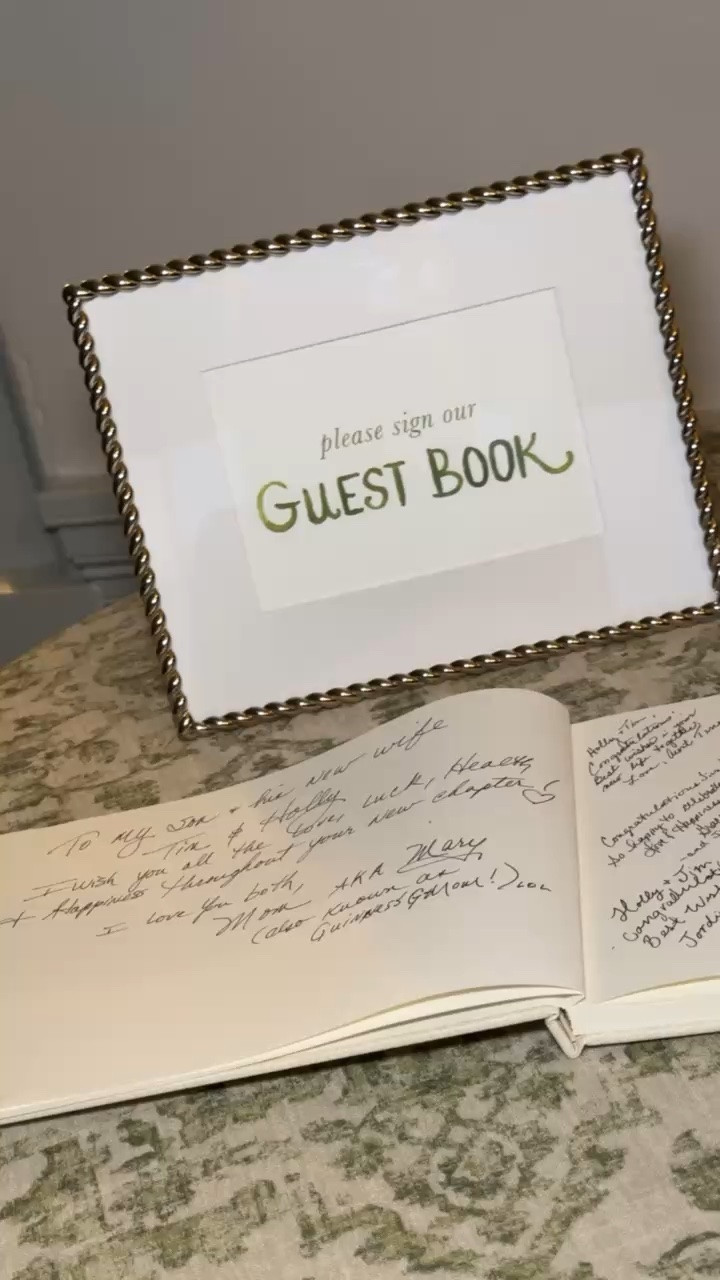 please sign our
GUEST BOOK
To my son + his new wife
Tim & Holly
I wish you all the love, luck, Health,
+ Happiness throughout your new chapter
I love you both,
Mom AKA Mary
(also known as
Guinness GMOM!)
Holly + Tim
Congratulations!
Best wishes in your
new life together
Love, Aunt
Congratulations
So happy to
Happiness
and
Holly + Tim
Congratulat
Best Wis
Jordi